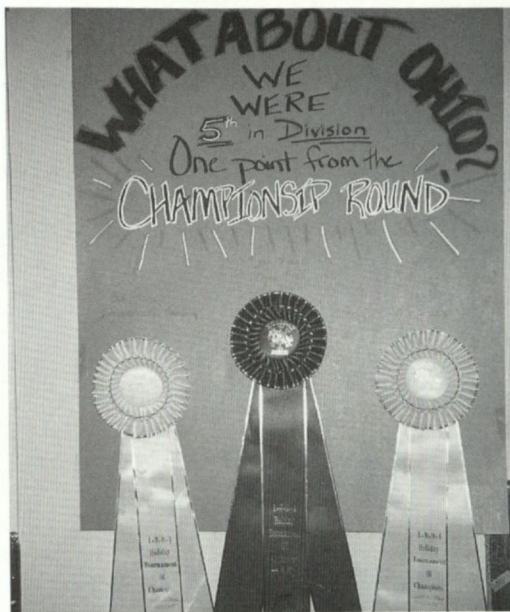 WHAT ABOUT OHIO?
WE
WERE
5th in Division
One point from the
CHAMPIONSIP ROUND
Holiday
Tournament
of
Holiday
Tournament
of
Champions